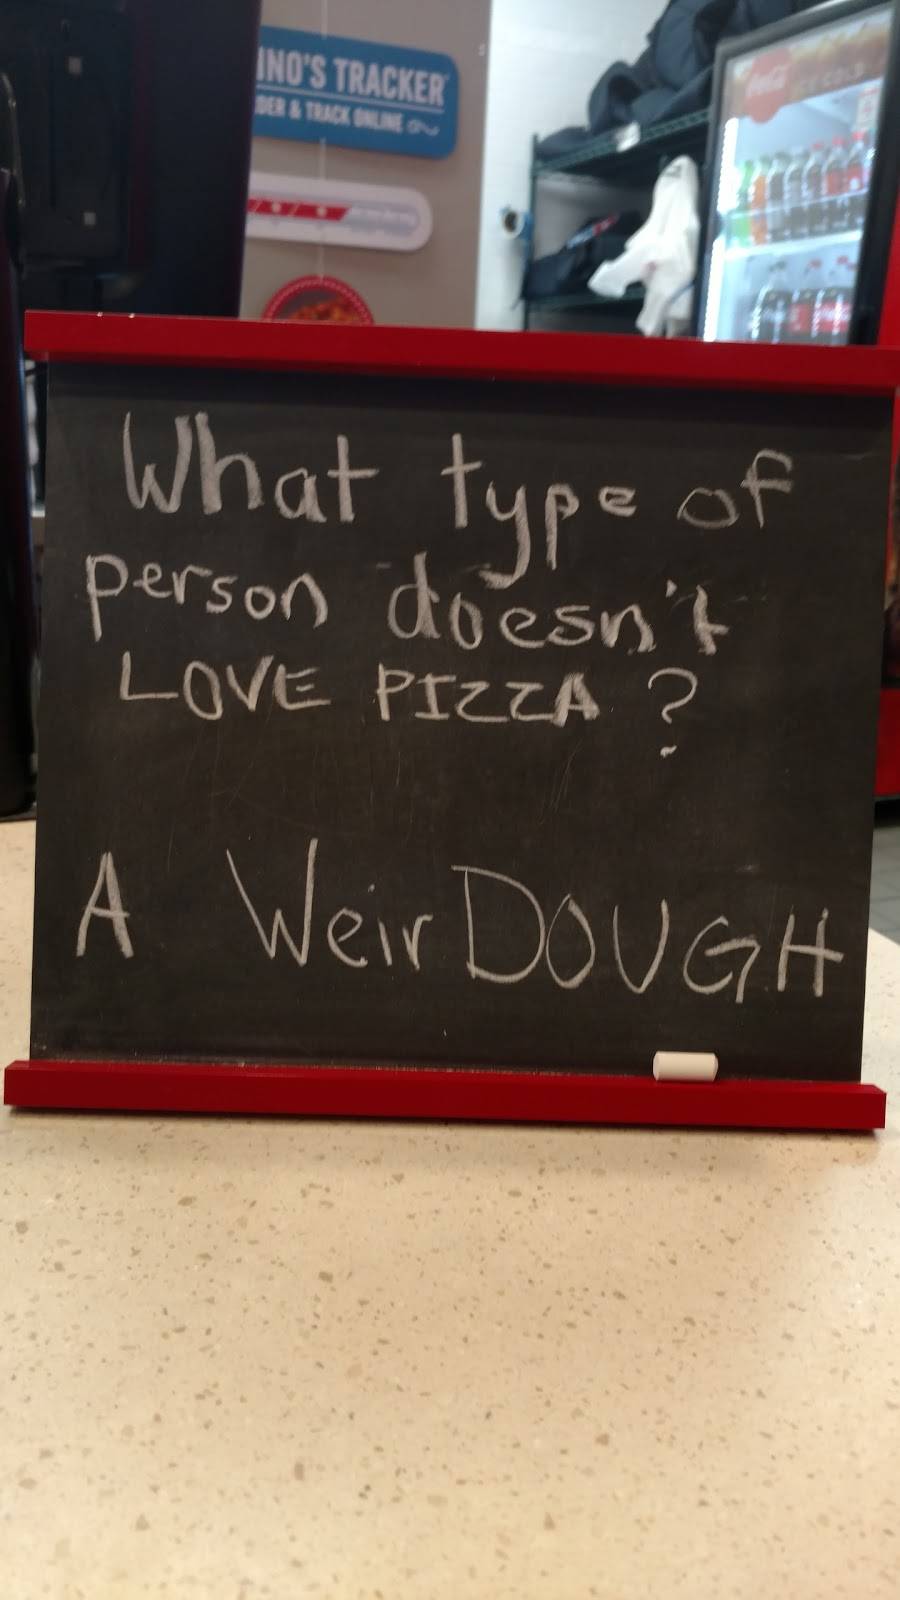 INO'S TRACKER
DER & TRACK ONLINE
Coca-Cola
ICE COLD
What type of
person doesn't
LOVE PIZZA ?
A WeirDOUGH